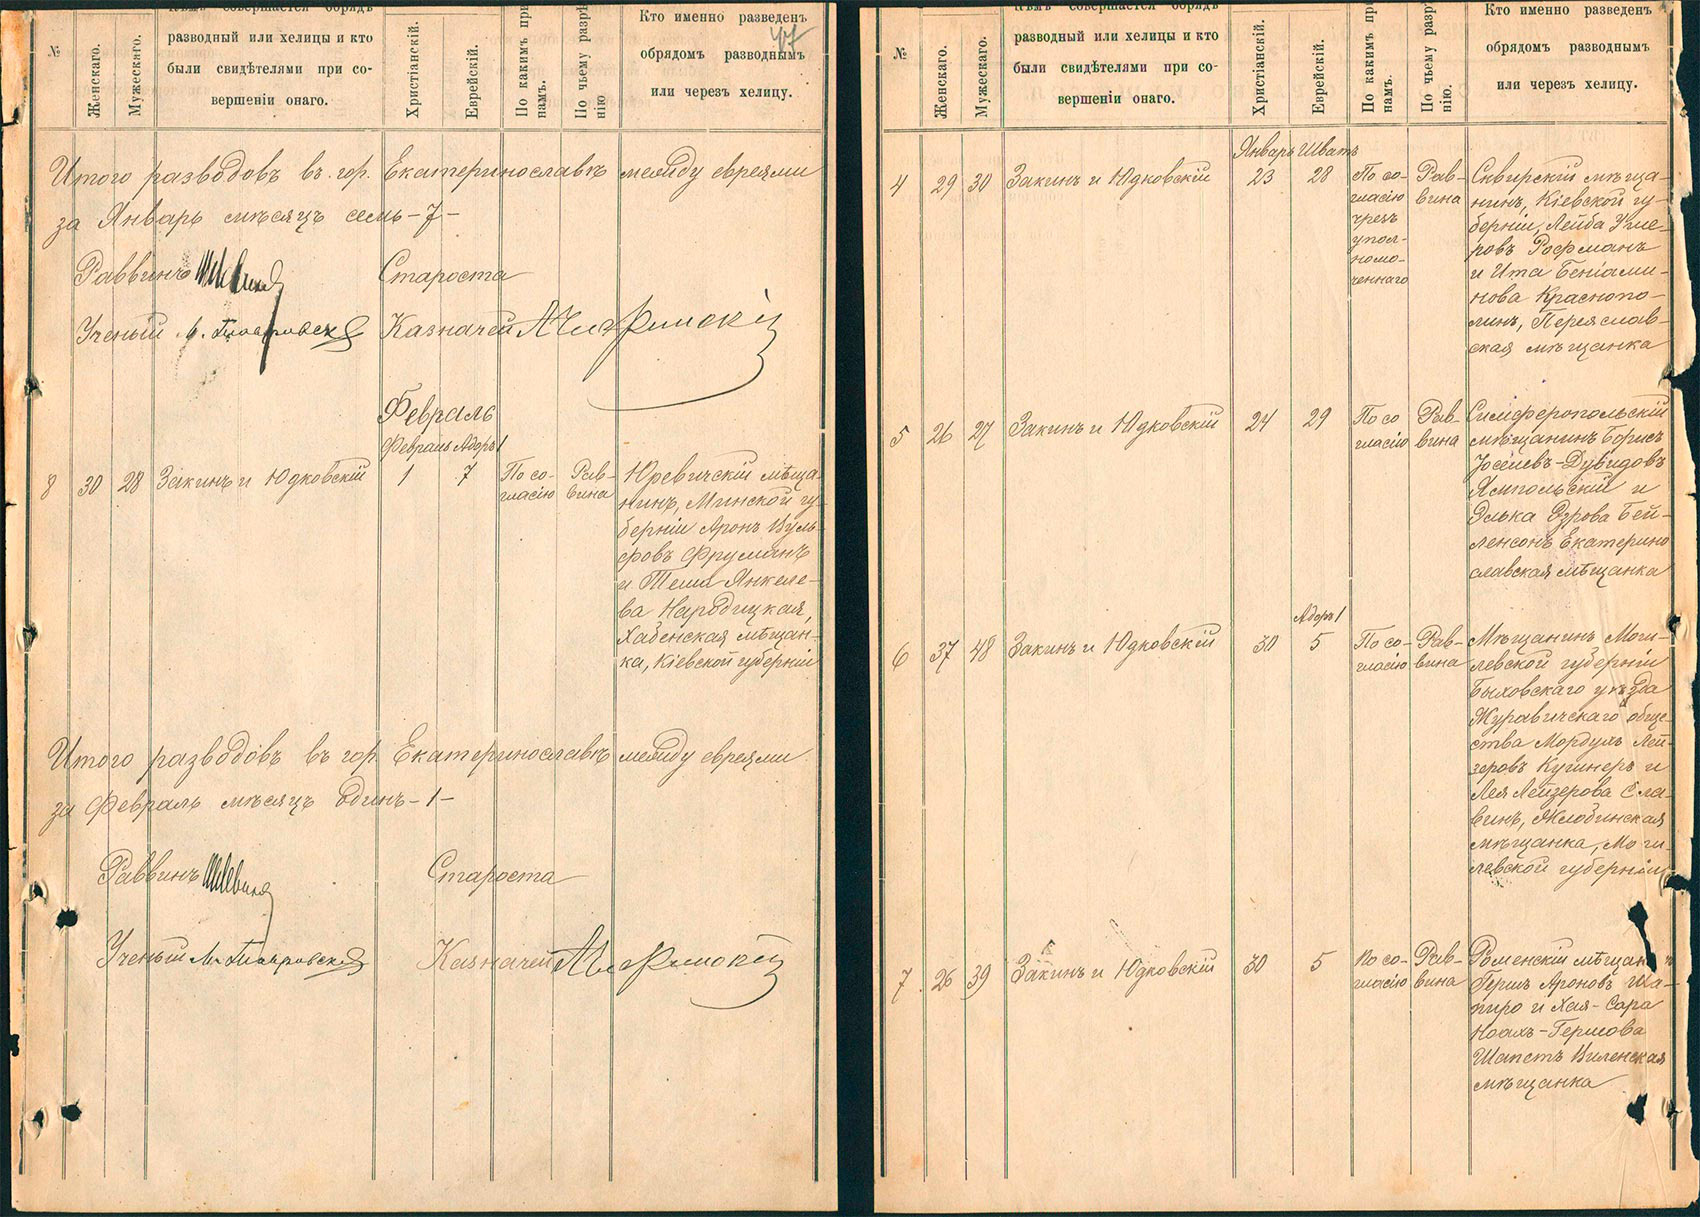 №
Женскаго.
Мужескаго.
разводный или хелицы и кто
были свидѣтелями при со-
вершеніи онаго.
Христіанскій.
Еврейскій.
По какимъ при
намъ.
По чьему разрѣ
нію
Кто именно разведенъ
обрядомъ разводнымъ
или черезъ хелицу.
47
Итого разводовъ въ гор. Екатеринославѣ между евреями
за Январь мѣсяцъ семь - 7 -
Раввинъ
Староста
Ученый
Казначей
Февраль
Февраль Адоръ 1
8 30 28 Закинъ и Юдковскій 1 7
По со-
гласію
Рав-
вина
Юревичскій мѣща-
нинъ, Минской гу-
берніи Аронъ Вуль-
фовъ Фруманъ
и Теми Янкеле-
ва Народицкая,
Хабенская мѣщан-
ка, Кіевской губерніи
Итого разводовъ въ гор. Екатеринославѣ между евреями
за Февраль мѣсяцъ одинъ - 1 -
Раввинъ
Староста
Ученый
Казначей
№
Женскаго.
Мужескаго.
разводный или хелицы и кто
были свидѣтелями при со-
вершеніи онаго.
Христіанскій.
Еврейскій.
По какимъ пр
намъ.
По чьему разр
нію.
Кто именно разведенъ
обрядомъ разводнымъ
или черезъ хелицу.
Январь Шватъ
4 29 30 Закинъ и Юдковскій 23 28
По со-
гласію
чрезъ
упол-
номо-
ченнаго
Рав-
вина
Сквирскій мѣща-
нинъ, Кіевской гу-
берніи, Лейба Уше-
ровъ Рофманъ
и Ита Беніами-
нова Краснопо-
линъ, Переяслав-
ская мѣщанка
5 26 27 Закинъ и Юдковскій 24 29
По со
гласію
Рав-
вина
Симферопольскій
мѣщанинъ Борисъ
Іоселевъ-Дувидовъ
Ямпольскій и
Элька Эзрова Бей-
ленсонъ Екатерино
славская мѣщанка
Адоръ 1
6 37 48 Закинъ и Юдковскій 30 5
По со-
гласію
Рав-
вина
Мѣщанинъ Моги-
левской губерніи
Быховскаго уѣзда
Журавичскаго обще-
ства Мордухъ Лей-
зеровъ Кугинеръ и
Лея Лейзерова Сла-
винъ, Жлобинская
мѣщанка, Моги-
левской губерніи
7 26 39 Закинъ и Юдковскій 30 5
По со-
гласію
Рав-
вина
Роменскій мѣщан
Гершъ Ароновъ Ша-
пиро и Хая-Сара
Ноахъ-Гершова
Шапстъ Виленская
мѣщанка